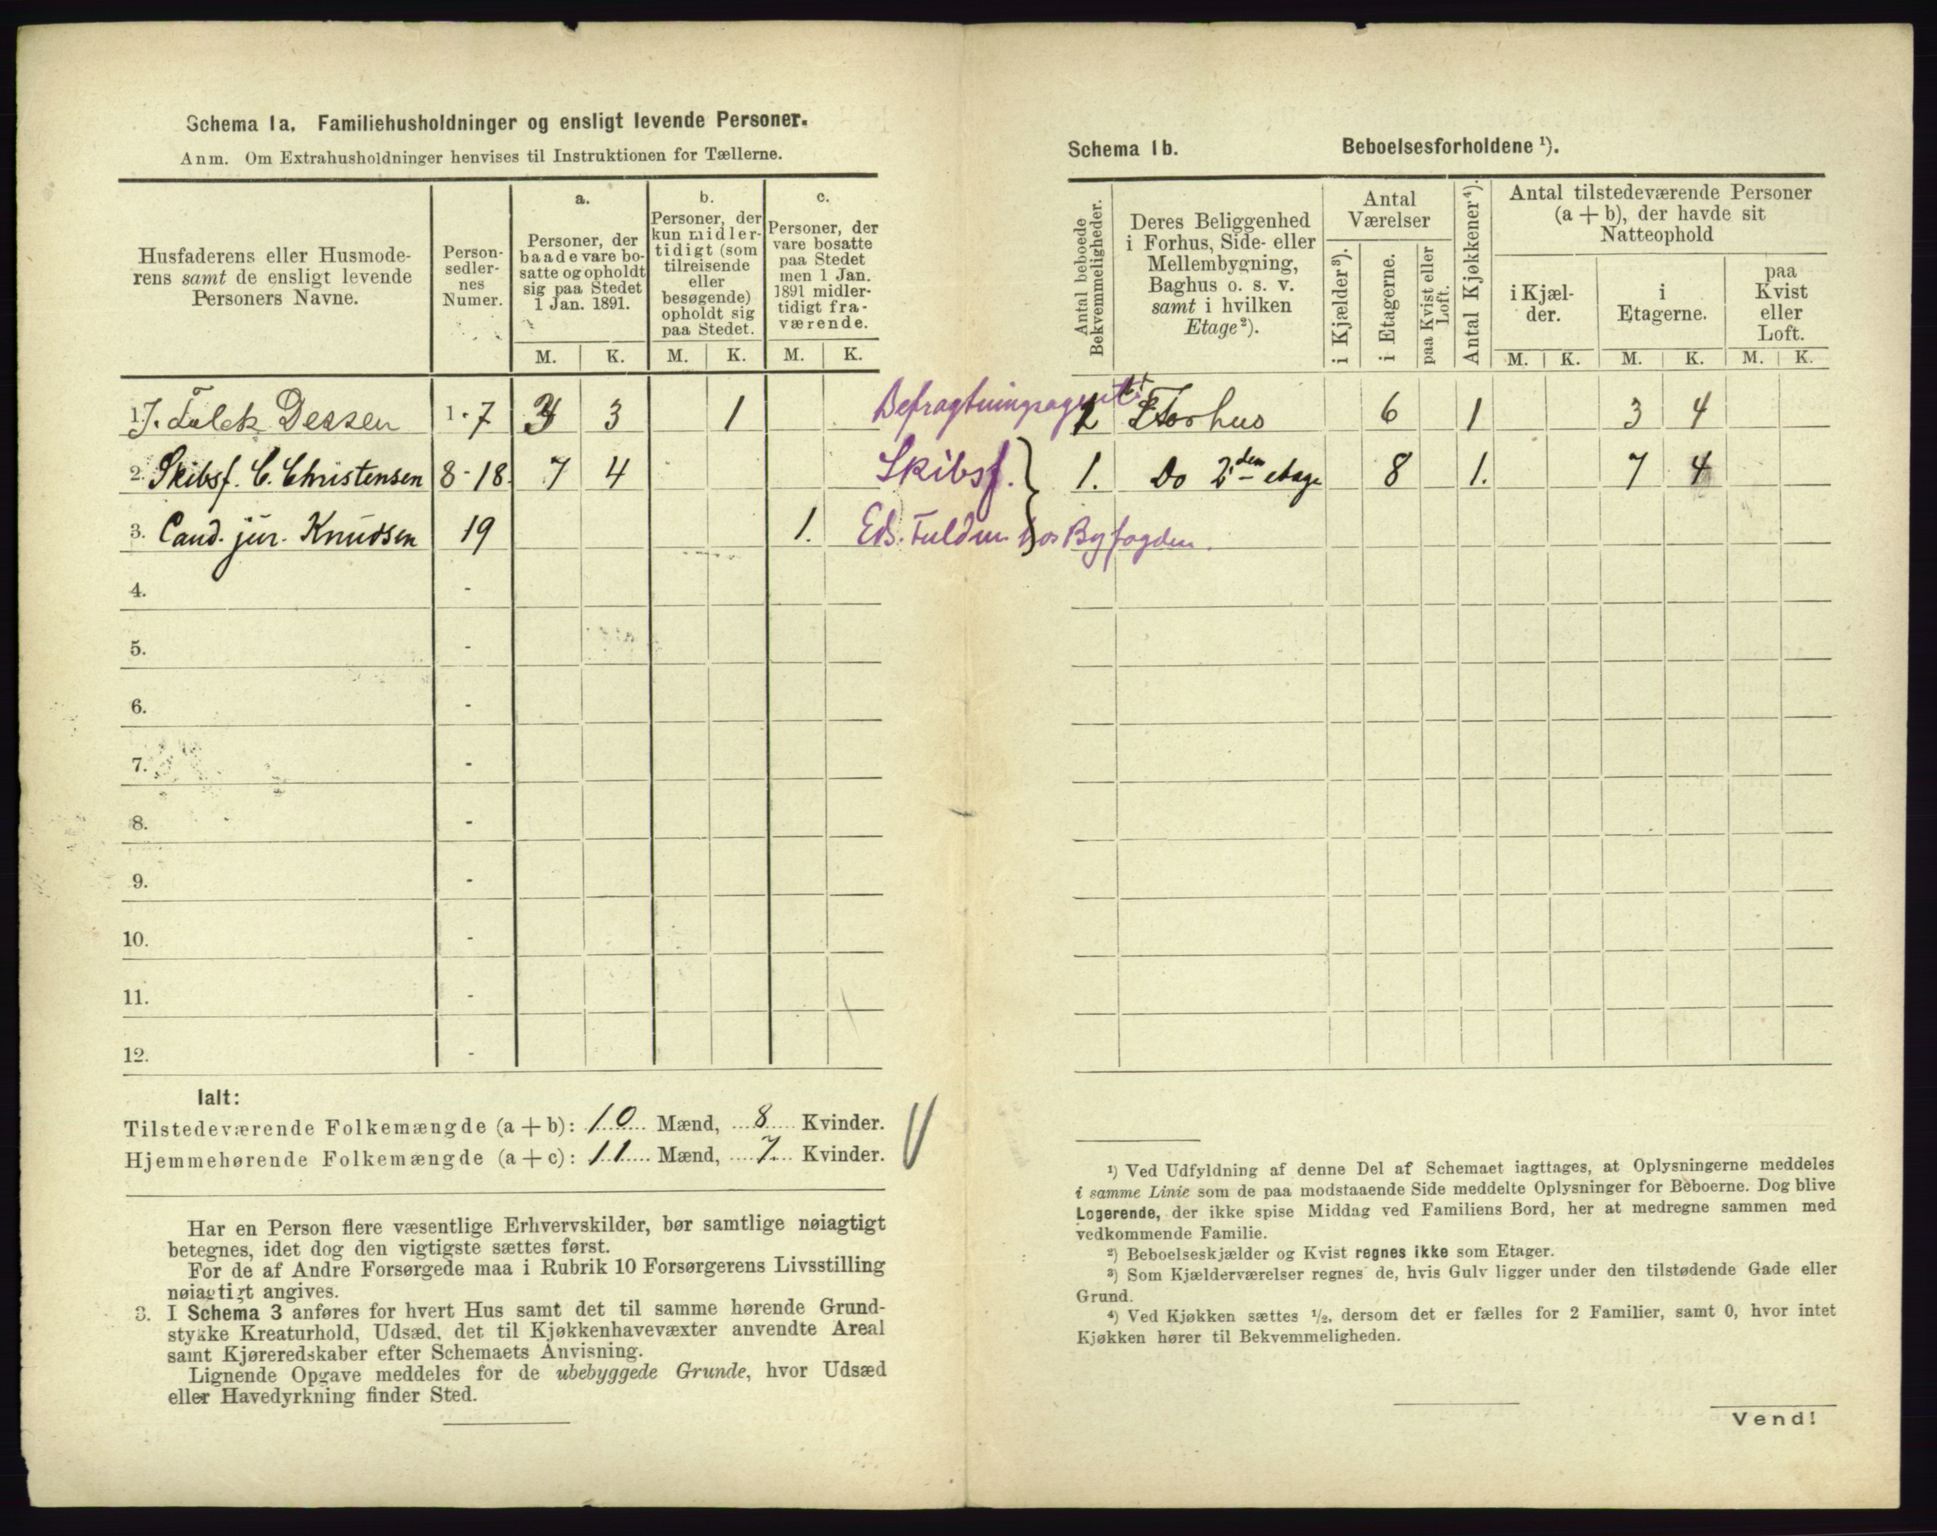 Schema 1a. Familiehusholdninger og ensligt levende Personer.
Anm. Om Extrahusholdninger henvises til Instruktionen for Tællerne.
Husfaderens eller Husmode-
rens samt de ensligt levende
Personers Navne.
Person-
sedler-
nes
Numer.
a.
Personer, der
baade vare bo-
satte og opholdt
sig paa Stedet
1 Jan. 1891.
M. K.
b.
Personer, der
kun midler-
tidigt (som
tilreisende
eller
besøgende)
opholdt sig
paa Stedet.
M. K.
c.
Personer, der
vare bosatte
paa Stedet
men 1 Jan.
1891 midler-
tidigt fra-
værende.
M. K.
1. J. Falck Dessen 1-7 3 3 1 Befragtningsagent
2. Skibsf. C. Christensen 8-18. 7 4 Skibsf.
3. Cand. jur. Knudsen 19 1. Eds. Fuldm. hos Byfogden.
4. -
5. -
6. -
7. -
8. -
9. -
10. -
11. -
12. -
Ialt:
Tilstedeværende Folkemængde (a + b): 10 Mænd, 8 Kvinder.
Hjemmehørende Folkemængde (a + c): 11 Mænd, 7 Kvinder.
Har en Person flere væsentlige Erhvervskilder, bør samtlige nøiagtigt
betegnes, idet dog den vigtigste sættes først.
For de af Andre Forsørgede maa i Rubrik 10 Forsørgerens Livsstilling
nøiagtigt angives.
3. I Schema 3 anføres for hvert Hus samt det til samme hørende Grund-
stykke Kreaturhold, Udsæd, det til Kjøkkenhavevæxter anvendte Areal
samt Kjøreredskaber efter Schemaets Anvisning.
Lignende Opgave meddeles for de ubebyggede Grunde, hvor Udsæd
eller Havedyrkning finder Sted.
Schema 1b. Beboelsesforholdene ¹).
Antal beboede
Bekvemmeligheder.
Deres Beliggenhed
i Forhus, Side- eller
Mellembygning,
Baghus o. s. v.
samt i hvilken
Etage²).
Antal
Værelser
i Kjælder³).
i Etagerne.
paa Kvist eller
Loft.
Antal Kjøkkener⁴).
Antal tilstedeværende Personer
(a + b), der havde sit
Natteophold
i Kjæl-
der.
M. K.
i
Etagerne.
M. K.
paa
Kvist
eller
Loft.
M. K.
Forhus 6 1 3 4
1. Do 2den etage 8 1. 7 4
¹) Ved Udfyldning af denne Del af Schemaet iagttages, at Oplysningerne meddeles
i samme Linie som de paa modstaaende Side meddelte Oplysninger for Beboerne. Dog blive
Logerende, der ikke spise Middag ved Familiens Bord, her at medregne sammen med
vedkommende Familie.
²) Beboelseskjælder og Kvist regnes ikke som Etager.
³) Som Kjælderværelser regnes de, hvis Gulv ligger under den tilstødende Gade eller
Grund.
⁴) Ved Kjøkken sættes ½, dersom det er fælles for 2 Familier, samt 0, hvor intet
Kjøkken hører til Bekvemmeligheden.
Vend!